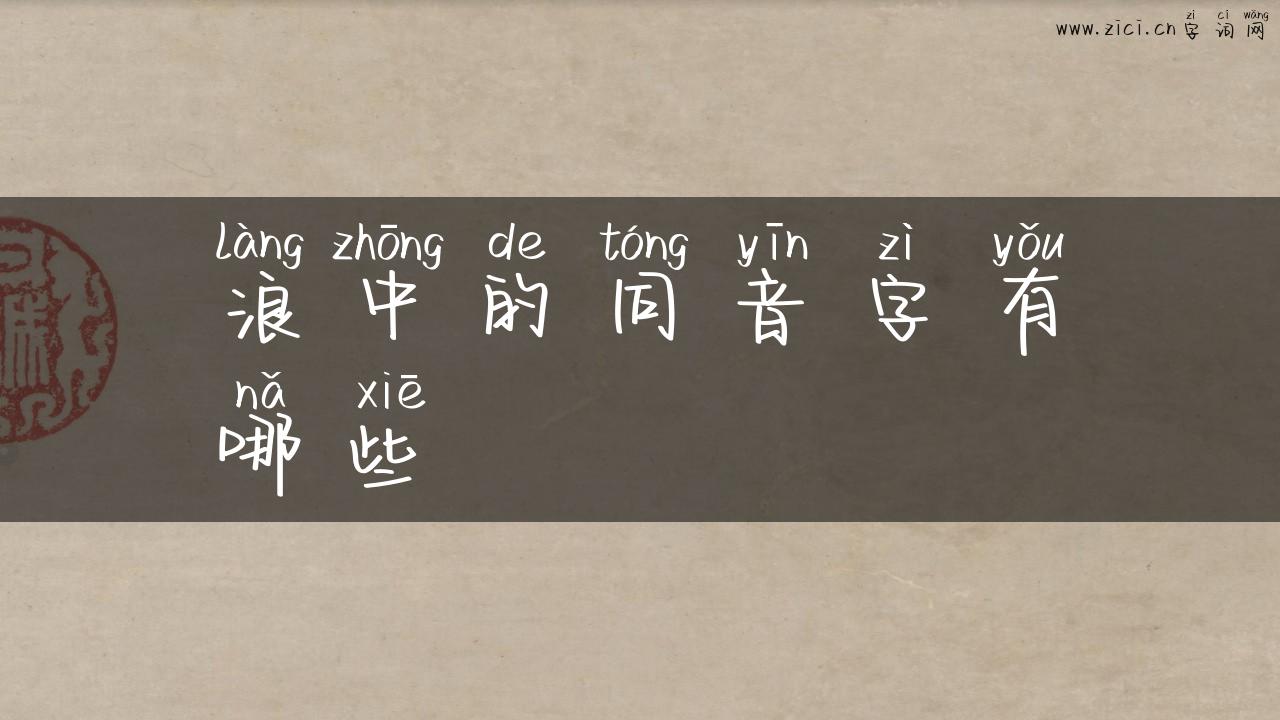 zì cí wǎng
www.zici.cn 字词网
làng zhōng de tóng yīn zì yǒu
浪中的同音字有
nǎ xiē
哪些